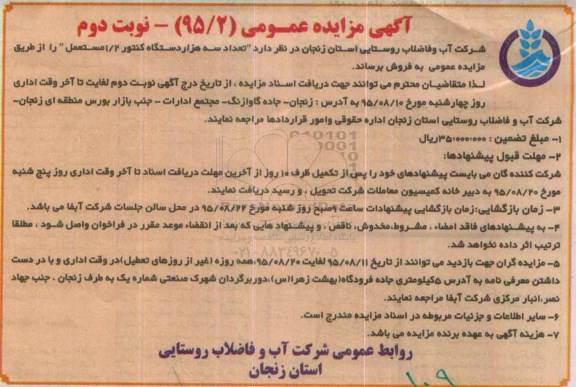 آگهی مزایده عمومی (۹۵/۲) – نوبت دوم
شرکت آب وفاضلاب روستایی استان زنجان در نظر دارد "تعداد سه هزاردستگاه کنتور ۱/۲مستعمل" را از طریق
مزایده عمومی به فروش برساند.
لذا متقاضیان محترم می توانند جهت دریافت اسناد مزایده ، از تاریخ درج آگهی نوبت دوم لغایت تا آخر وقت اداری
روز چهارشنبه مورخ ۹۵/۰۸/۱۰ به آدرس : زنجان- جاده گاوازنگ- مجتمع ادارات - جنب بازار بورس منطقه ای زنجان-
شرکت آب و فاضلاب روستایی استان زنجان اداره حقوقی وامور قراردادها مراجعه نمایند.
۱- مبلغ تضمین : ۳۵۰۰۰۰۰۰۰ریال
۲- مهلت قبول پیشنهادها:
شرکت کننده گان می بایست پیشنهادهای خود را پس از تکمیل ظرف ۱۰ روز از آخرین مهلت دریافت اسناد تا آخر وقت اداری روز پنج شنبه
مورخ ۹۵/۰۸/۲۰ به دبیر خانه کمیسیون معاملات شرکت تحویل ، و رسید دریافت نمایند.
۳- زمان بازگشایی:زمان بازگشایی پیشنهادات ساعت ۹صبح روز شنبه مورخ ۹۵/۰۸/۲۲ در محل سالن جلسات شرکت آبفا می باشد.
۴- به پیشنهادهای فاقد امضاء ، مشروط،مخدوش، ناقص ، و پیشنهاد هایی که بعد از انقضاء موعد مقرر در فراخوان واصل شود ، مطلقا
ترتیب اثر داده نخواهد شد.
۵- مزایده گران جهت بازدید می توانند از تاریخ ۹۵/۰۸/۱۱ لغایت ۹۵/۰۸/۲۰،همه روزه (غیر از روزهای تعطیل)در وقت اداری و با در دست
داشتن معرفی نامه به آدرس ۵کیلومتری جاده فرودگاه(بهشت زهرا(س)،دوربرگردان شهرک صنعتی شماره یک به طرف زنجان ، جنب جهاد
نصر،انبار مرکزی شرکت آبفا مراجعه نمایند.
۶- سایر اطلاعات و جزئیات مربوطه در اسناد مزایده مندرج است.
۷- هزینه آگهی به عهده برنده مزایده می باشد.
روابط عمومی شرکت آب و فاضلاب روستایی
استان زنجان
۱۰۹